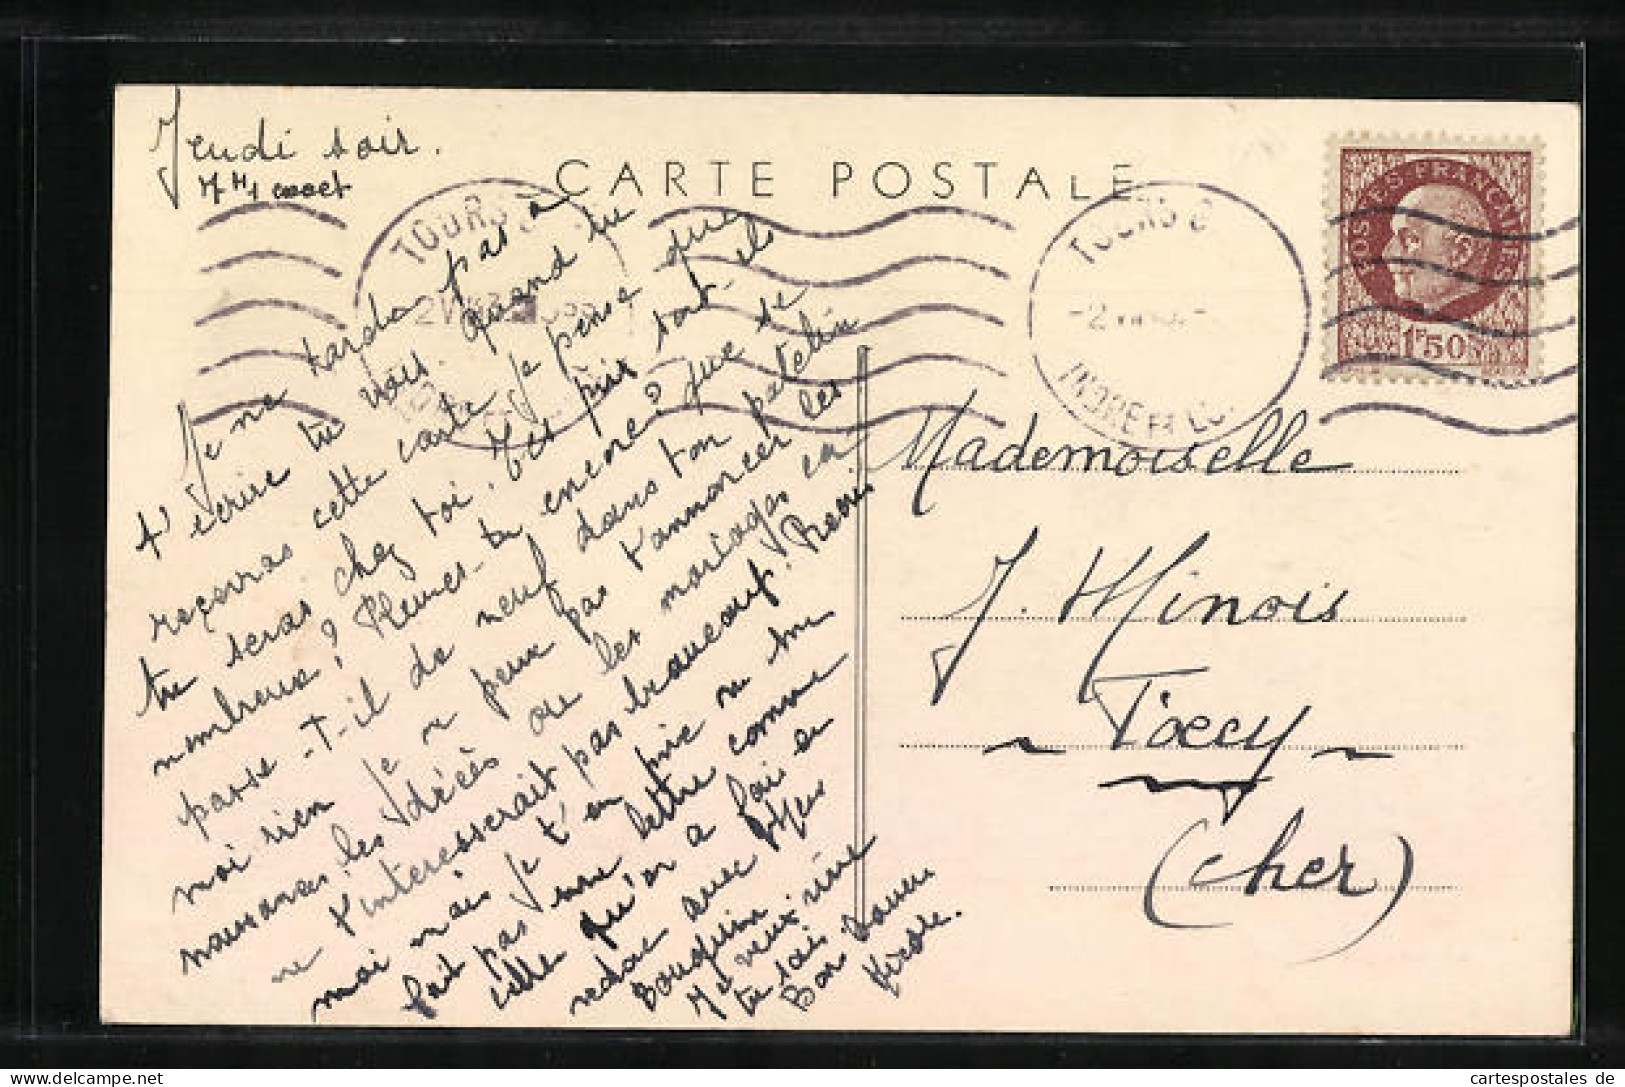 Jeudi soir.
7 H 1 exact
CARTE POSTALE
TOURS
TOURS
INDRE ET LO.
POSTES FRANÇAISES
1F50
Je ne tarda pas à
t'écrire tu vois. Quand tu
recevras cette carte je pense que
tu seras chez toi. Tes puis sont-ils
nombreux? Pleures-tu encore? que se
passe-T-il de neuf dans ton patelin
moi rien je n peux pas t'annoncer les
naissances, les décès ou les mariages ca
ne t'intéresserait pas beaucoup. Reçois
moi mais je t'en prie ne me
fait pas une lettre comme
celle qu'on a fait en
redac avec
Bouquin
veux rire
tu sais Bon
Mademoiselle
J. Minois
~ Toecy ~
(Cher)
cartespostales de